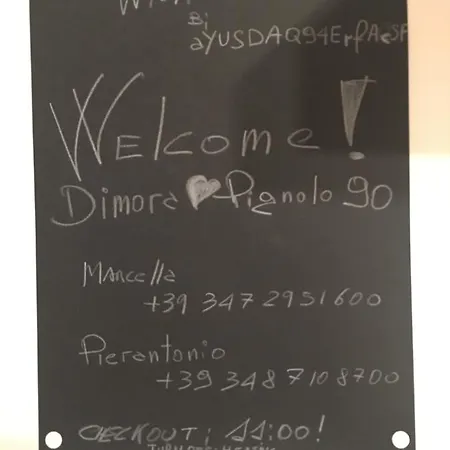 Bi
Welcome!
Dimora Pignolo 90
Marcella
+39 347 2951600
Pierantonio
+39 348 7108700
CHECKOUT: 11:00!